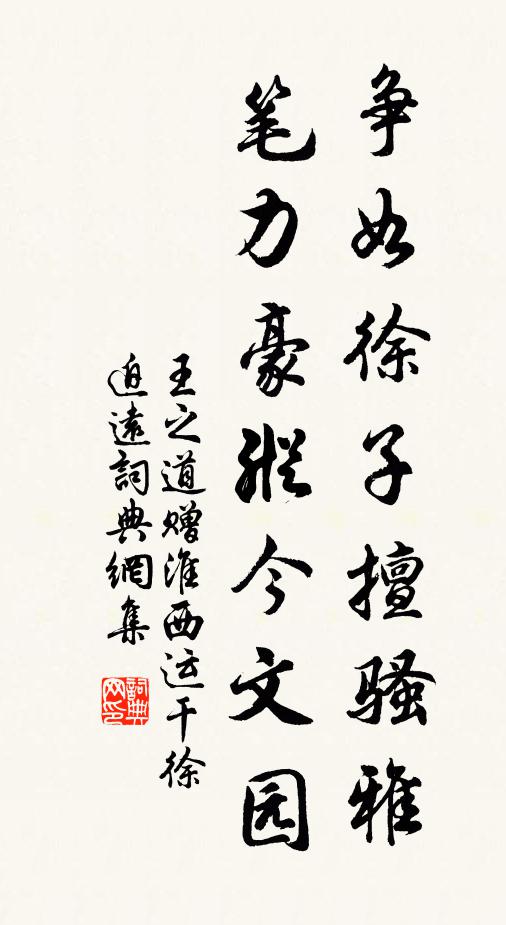 争如徐子擅骚雅
笔力豪縱今文园
王之道赠淮西运干徐
迫遠詞典網集
詞典
网印